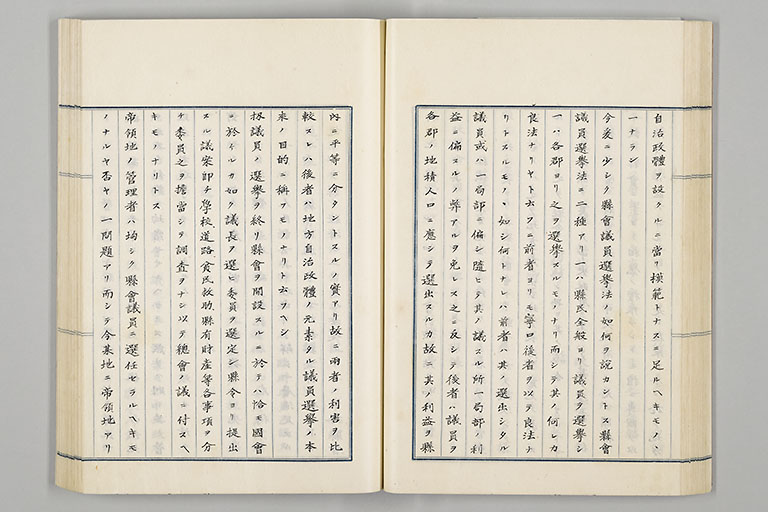 自治政體ヲ設クルニ當リ模範トナスニ足ルヘキモノヽ
一ナラン
今爰ニ少シク縣會議員選擧法ノ如何ヲ說カントス縣會
議員選擧法ニ二種アリ一ハ縣民全般ヨリ議員ヲ選擧シ
一ハ各郡ヨリ之ヲ選擧スルモノナリ而シテ其ノ何レカ
良法ナリヤト云フニ前者ヨリモ寧ロ後者ヲ以テ良法ナ
リトスルモノヽ如シ何トナレハ前者ハ其ノ選出シタル
議員或ハ一局部ニ偏シ隨ヒテ其ノ議スル所一局部ノ利
益ニ偏スルノ弊アルヲ免レス之ニ反シテ後者ハ議員ヲ
各郡ノ地積人口ニ應シテ選出スルカ故ニ其ノ利益ヲ縣
內ニ平等ニ分タントスルノ實アリ故ニ兩者ノ利害ヲ比
較スレハ後者ハ地方自治政體ノ元素タル議員選擧ノ本
來ノ目的ニ稱フモノナリト云フヘシ
扨議員ノ選擧ヲ終リ縣會ヲ開設スルニ於テハ恰モ國會
ニ於イルカ如ク議長ヲ選ヒ委員ヲ選定シ縣令ヨリ提出
スル議案卽チ學校、道路貧民救助縣有財産等各事項ヲ分
チ委員之ヲ擔當シテ調査ヲナシ以テ總會ノ議ニ付スヘ
キモノナリトス
帝領地ノ管理者ハ均シク縣會議員ニ選任セラルヘキモ
ノナルヤ否ヤノ一問題アリ而シテ今某地ニ帝領地アリ